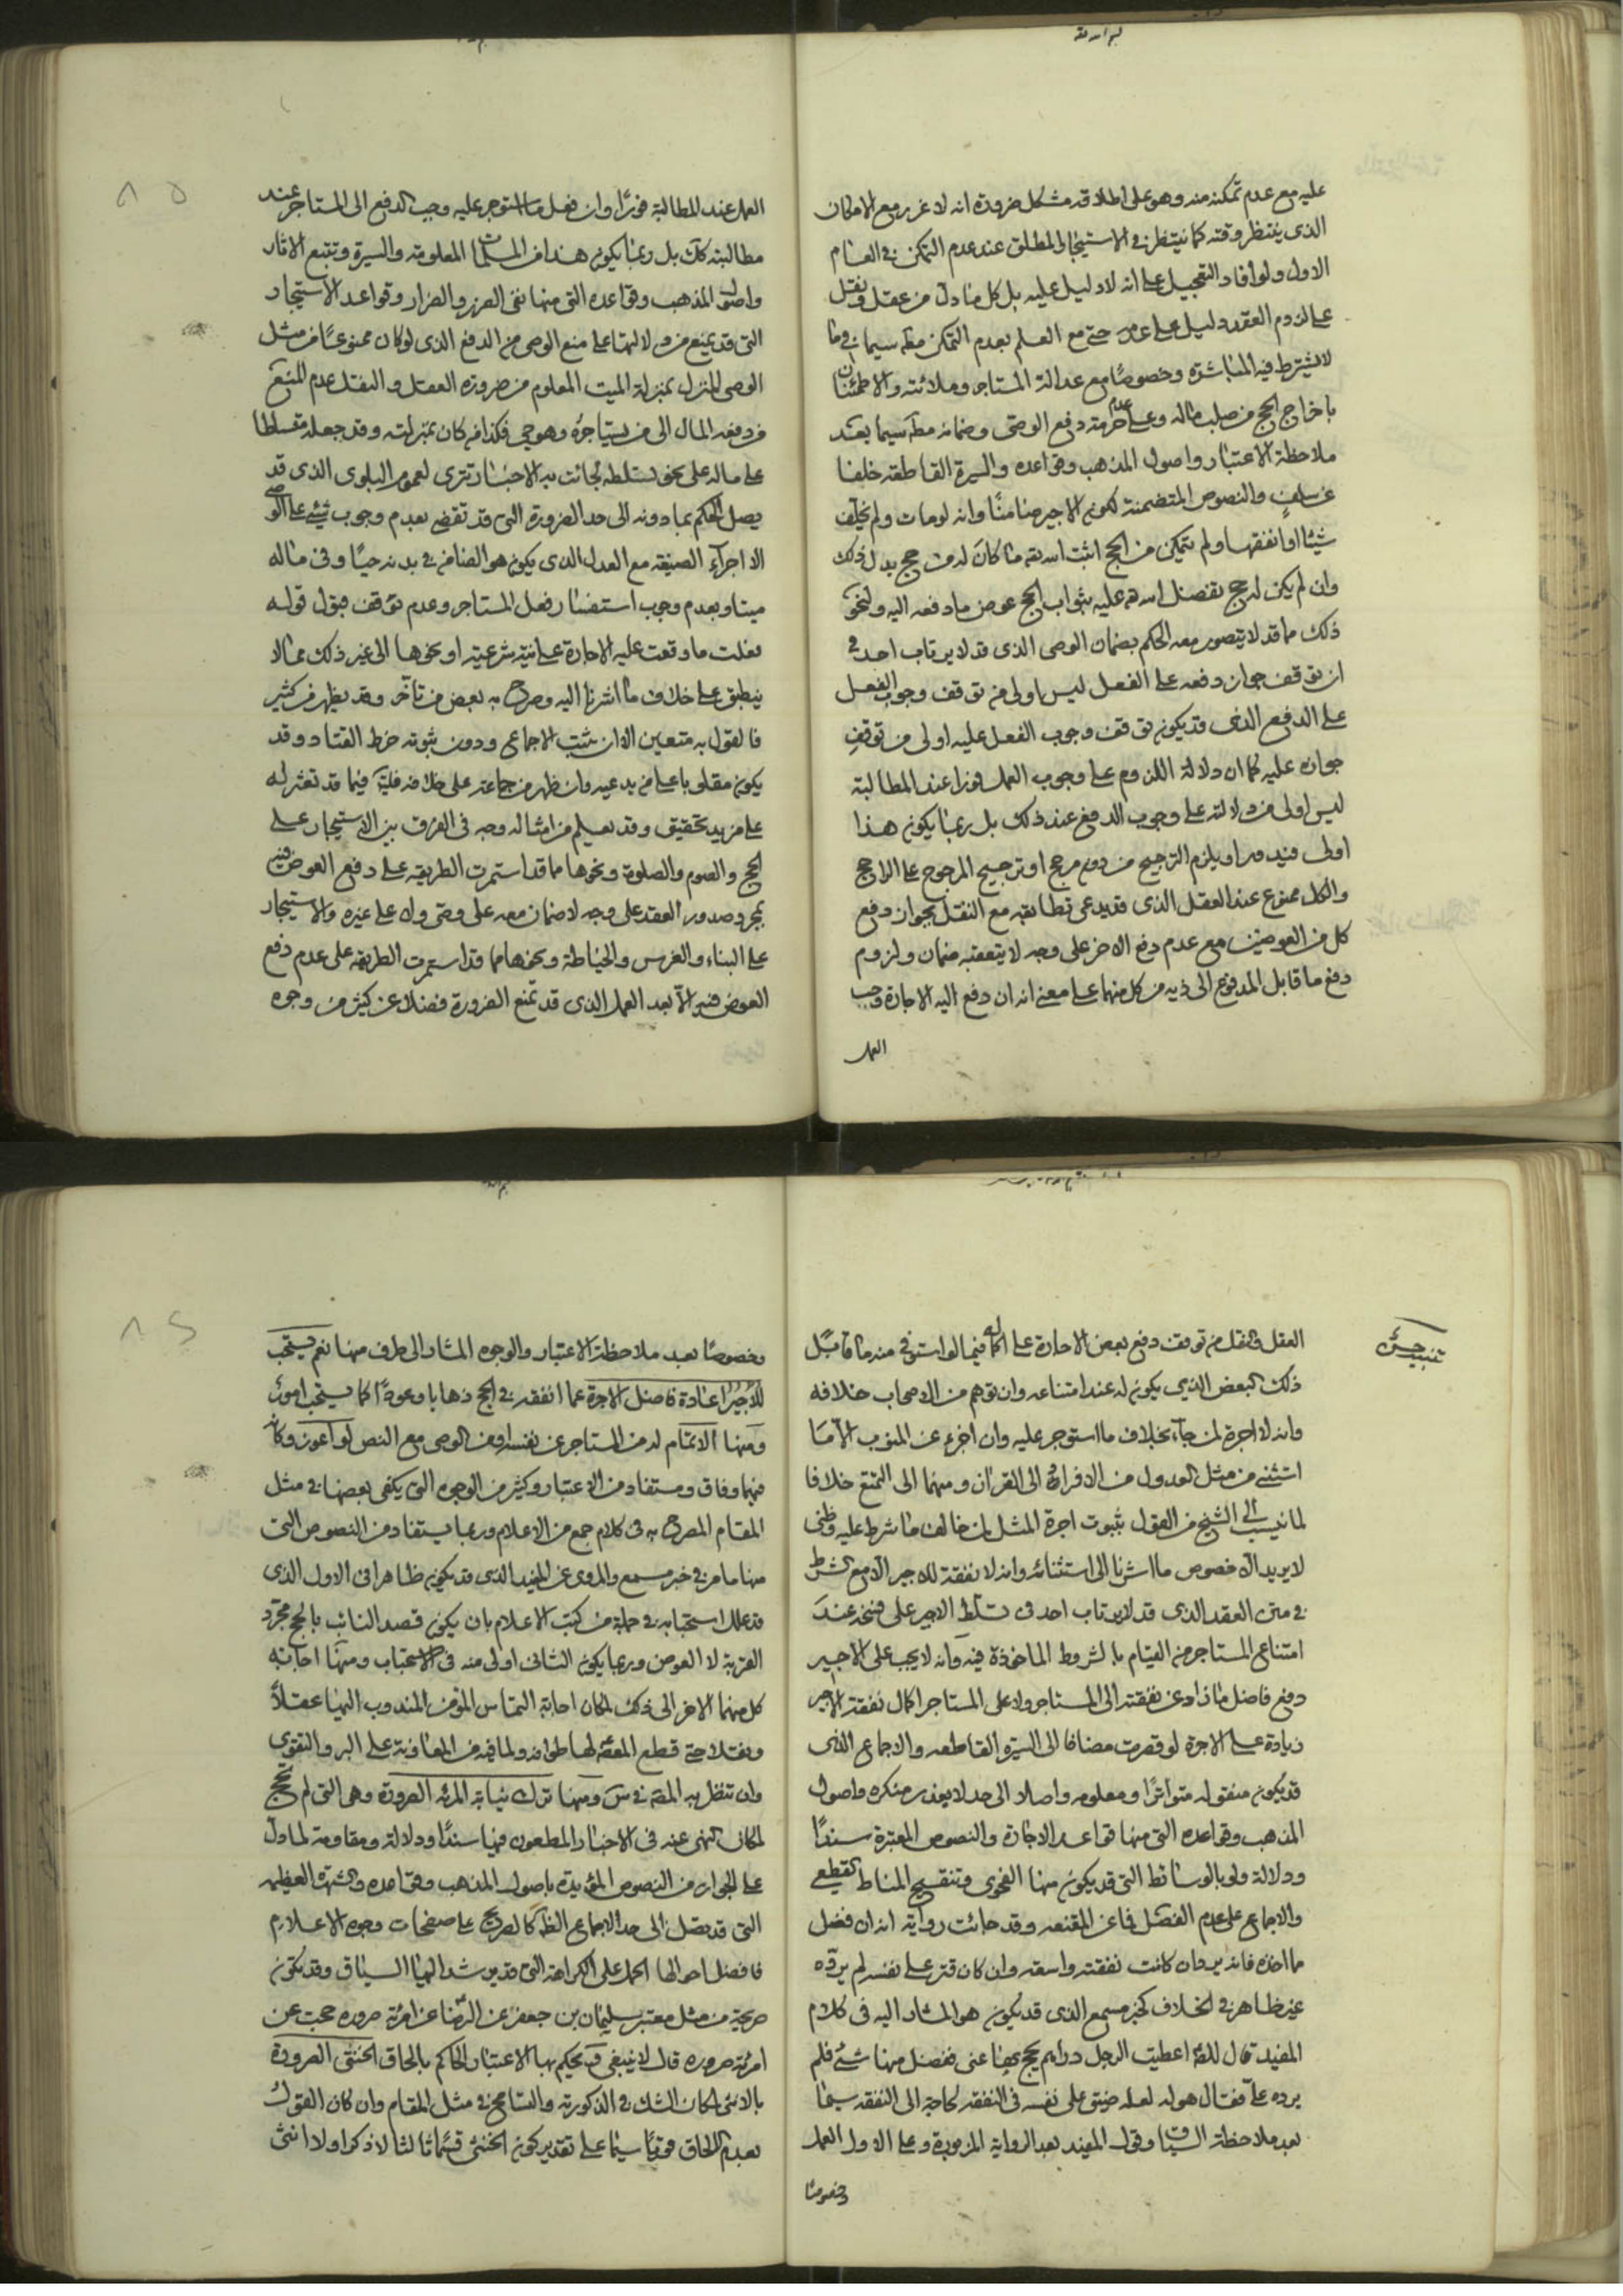 عليه مع عدم تمكنه منه وهو على اطلاقه مشكل ضرورة انه لا غرر مع الامكان
الذى ينتظر وقته كما ينتظر فى الاستيجار المطلق عند عدم التمكن فى العام
الاول ولو افاد التعجيل على انه لا دليل عليه بل كل ما دل من عقل ونقل
على لزوم العقد دليل على عدمه حتى مع العلم بعدم التمكن مطه سيما فيما
لا يشترط فيه المباشرة وخصوصًا مع عدالة المستاجر وملائته والاطمئنان
باخراج الحج من صلب ماله وعلى عدم حرمة دفع الوصى وضمانه مطه سيما بعد
ملاحظة الاعتبار واصول المذهب وقواعده والسيرة القاطعه خلفا
عن سلف والنصوص المتضمنة لكون الاجير ضامنًا وانه لو مات ولم يخلف
شيئا او انفقها ولم يتمكن من الحج اثبت الله ما كان له من حج بدل ذلك
وان لم يكن له حج تفضل الله عليه بثواب الحج عوض ما دفعه اليه ونحو
ذلك مما قد لا يتصور معه الحكم بضمان الوصى الذى قد لا يرتاب احد فى
ان توقف جواز دفعه على الفعل ليس اولى من توقف وجوب الفعل
على الدفع الذى قد يكون توقف وجوب الفعل عليه اولى من توقف
جوازه عليه كما ان دلالة اللزوم على وجوب العمل فورا عند المطالبة
ليس اولى من دلالته على وجوب الدفع عند ذلك بل ربما يكون هذا
اولى فيدور او يلزم الترجيح من دون مرجح او ترجيح المرجوح على الراجح
والكل ممنوع عند العقل الذى قد يدعى تطابقه مع النقل بجواز دفع
كل من العوضين مع عدم دفع الاخر على وجه لا يتعقبه ضمان ولزوم
دفع ما قابل المدفوع الى ذيه من كل منهما على معنى انه ان دفع اليه الاجارة وجب
العمل
العمل عند المطالبة فورًا وان فعل ما استوجر عليه وجب الدفع الى المستاجر عند
مطالبته كك بل ربما يكون هذا من المسلمات المعلومة والسيرة وتتبع الاثار
واصول المذهب وقواعده التى منها نفى الضرر والضرار وقواعد الاستيجار
التى قد يمنع من دلالتها على منع الوصى من الدفع الذى لو كان ممنوعًا من مثل
الوصى المنزل بمنزلة الميت المعلوم من ضرورة العقل والنقل عدم المنع
من دفعه المال الى من يستاجره وهو حى فكذا من كان بمنزلته وقد جعله متسلطا
على ماله على نحو تسلطه لجائت به الاخبار تترى لعموم البلوى الذى قد
يصل الحكم بما دونه الى حد الضرورة التى قد تقضى بعدم وجوب شئ على الوصى
الا اجراء الصيغة مع العدل الذى يكون هو الضامن فى بدنه حيًا وفى ماله
ميتا وبعدم وجوب استفسار فعل المستاجر وعدم توقف قبول قوله
فعلت ما وقعت عليه الاجارة على نية شرعية او نحوها الى غير ذلك مما لا
ينطبق على خلاف ما اشرنا اليه وصرح به بعض من تاخر وقد يظهر من كثير
فالقول به متعين الا ان يثبت الاجماع ودون ثبوته خرط القتاد وقد
يكون مقلوبا على من يدعيه وان ظهر من جماعة على خلافه فليت فيما قد تعثر له
على مزيد تحقيق وقد يعلم من امثاله وجه فى الفرق بين الاستيجار على
الحج والصوم والصلوة ونحوها مما قد استمرت الطريقه على دفع العوض فيه
بمجرد صدور العقد على وجه لا ضمان معه على وصى ولا على غيره والاستيجار
على البناء والغرس والخياطة ونحوها مما قد استمرت الطريقه على عدم دفع
العوض فيه الا بعد العمل الذى قد تمنع الضرورة فضلا عن كثير من وجوه
تنبيه حسن
العقل والنقل من توقف دفع بعض الاجارة على اكماله فيما لو استوفى منه ما قابل
ذلك البعض الذى يكون له عند امتناعه وان توهم من الاصحاب خلافه
وانه لا اجرة لمن جاء بخلاف ما استوجر عليه وان اجزء عن المنوب الا ما
استثنى من مثل العدول من الافراد الى القران ومنهما الى التمتع خلافا
لما نسب الى الشيخ من القول بثبوت اجرة المثل لمن خالف ما شرط عليه وظنى
لا يريد الا خصوص ما اشرنا الى استثنائه وانه لا نفقة للاجير الا مع شرط
فى متن العقد الذى قد لا يرتاب احد فى تسلط الاجير على فسخه عند
امتناع المستاجر من القيام بالشروط الماخوذة فيه وانه لا يجب على الاجير
دفع فاضل ما زاد عن نفقته الى المستاجر ولا على المستاجر اكمال نفقة الاجير
زيادة على الاجرة لو قصرت مضافا الى السيرة القاطعه والاجماع الذى
قد يكون منقوله متواترًا ومعلومه واصلا الى حد لا يعذر منكره واصول
المذهب وقواعده التى منها قواعد الاجارة والنصوص المعتبرة سندًا
ودلالة ولو بالوسائط التى قد يكون منها الفحوى وتنقيح المناط القطعى
والاجماع على عدم الفصل فما عن المقنعه وقد جائت رواية انه ان فضل
مما اخذه فانه يرده ان كانت نفقته واسعه وان كان قتر على نفسه لم يرده
غير ظاهر فى الخلاف كخبر مسمع الذى قد يكون هو المشار اليه فى كلام
المفيد قال للصه اعطيت الرجل دراهم يحج بها عنى ففضل منها شئ فلم
يرده على فقال هو له لعله ضيق على نفسه فى النفقه لحاجة الى النفقه سيما
بعد ملاحظة السياق وقول المفيد بعد الرواية المزبورة وعلى الاول العمل
وخصوصًا
وخصوصًا بعد ملاحظة الاعتبار والوجوه المشار الى طرف منها نعم يستحب
للاجير اعادة فاضل الاجرة عما انفقه فى الحج ذهابا وعودًا كما يستحب امور
ومنها الاتمام له من المستاجر عن نفسه او من الوصى مع النص لو اعوز وكانه
فيهما وفاق ومستفاد من الاعتبار وكثير من الوجوه التى يكفى بعضها فى مثل
المقام المصرح به فى كلام جمع من الاعلام وربما يستفاد من النصوص التى
منها ما مر فى خبر مسمع والمروى عن المفيد الذى قد يكون ظاهرا فى الاول الذى
قد علل استحبابه فى جملة من كتب الاعلام بان يكون قصد النائب بالحج مجرد
القربة لا العوض وربما يكون الثانى اولى منه فى الاستحباب ومنها اجابة
كل منهما الاخر الى ذلك لمكان اجابة التماس المؤمن المندوب اليها عقلاً
ونقلا حتى قطع المعصوم لها طوافه ولما فيه من المعاونة على البر والتقوى
وان تنظر به المصه فى س ومنها ترك نيابة المرئه الصرورة وهى التى لم تحج
لمكان النهى عنه فى الاخبار المطعون فيها سندًا ودلالة ومقاومة لما دل
على الجواز من النصوص المؤيدة باصول المذهب وقواعده والشهرة العظيمه
التى قد تصل الى حد الاجماع الظاهر كالصريح على صفحات وجوه الاعلام
فافضل احوالها الحمل على الكراهة التى قد يرشد اليها السياق وقد يكون
صريحة من مثل معتبر سليمان بن جعفر عن الرضا عن امرئة صرورة حجت عن
امرئة صرورة قال لا ينبغى وقد يحكم بها الاعتبار الحاكم بالحاق الخنثى الصرورة
بالانثى لمكان الشك فى الذكورية والتسامح فى مثل المقام وان كان القول
بعدم الالحاق قويًا سيما على تقدير كون الخنثى قسمًا ثالثا لا ذكرا ولا انثى